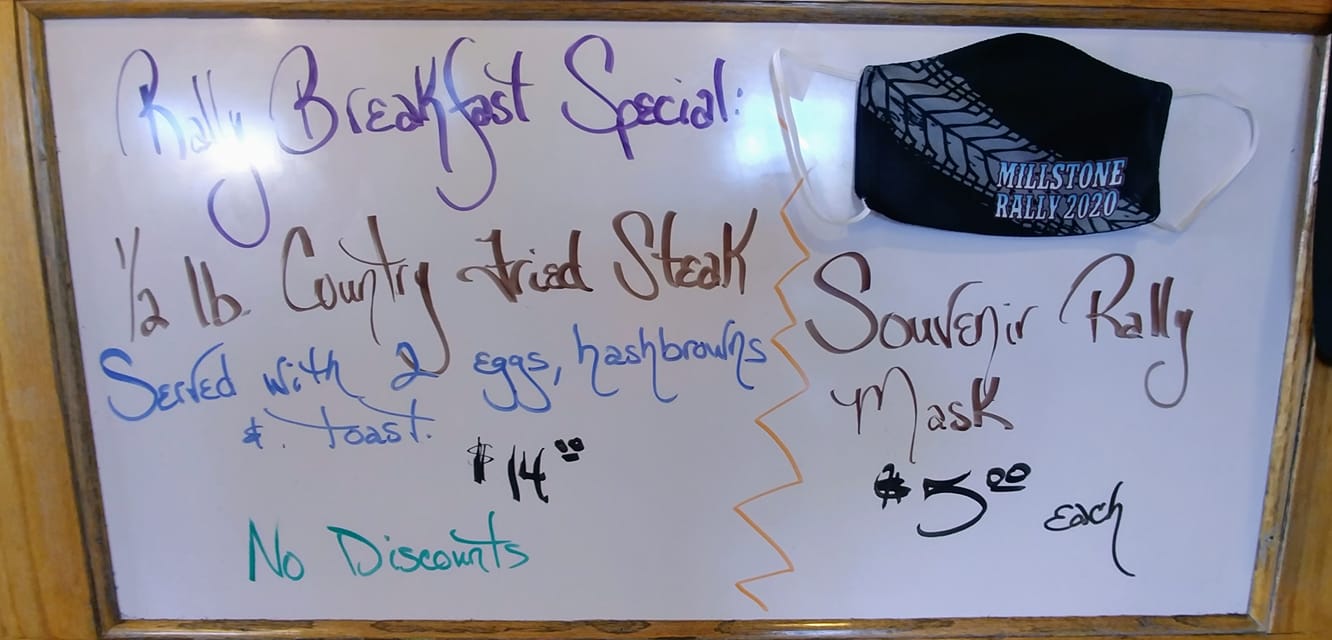 Rally Breakfast Special:
1/2 lb. Country Fried Steak
Served with 2 eggs, hashbrowns
&. toast.
$14.00
No Discounts
MILLSTONE
RALLY 2020
Souvenir Rally
Mask
$5.00 each